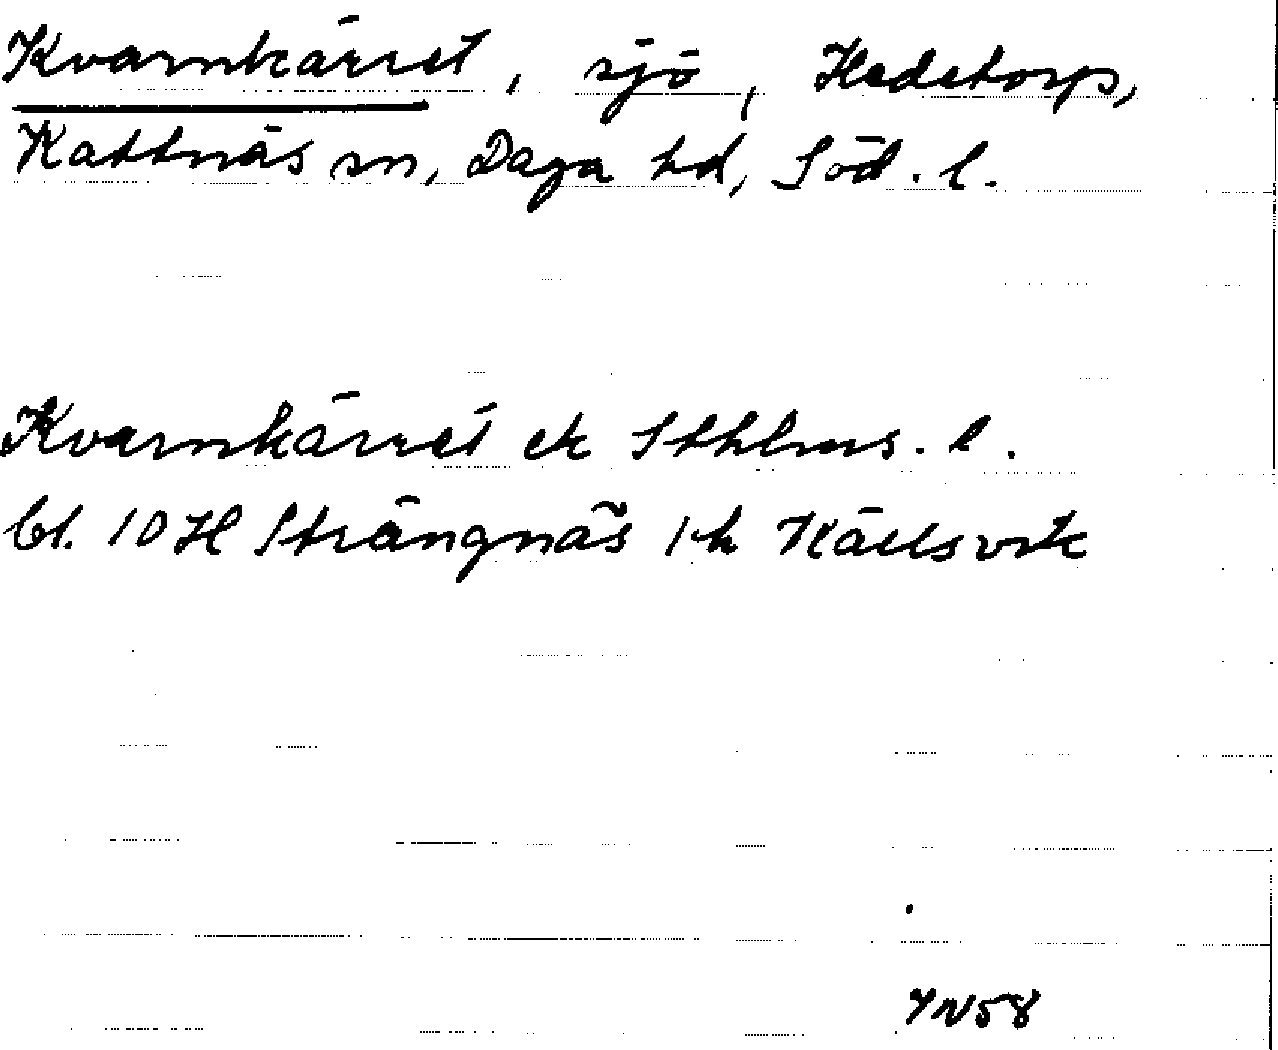 Kvarnkärret, sjö, Hedetorp,
Kattnäs sn, Daga hd, Söd. l.
Kvarnkärret ek Sthlms. l.
bl. 10 H Strängnäs 1-k Källsvik
YN58